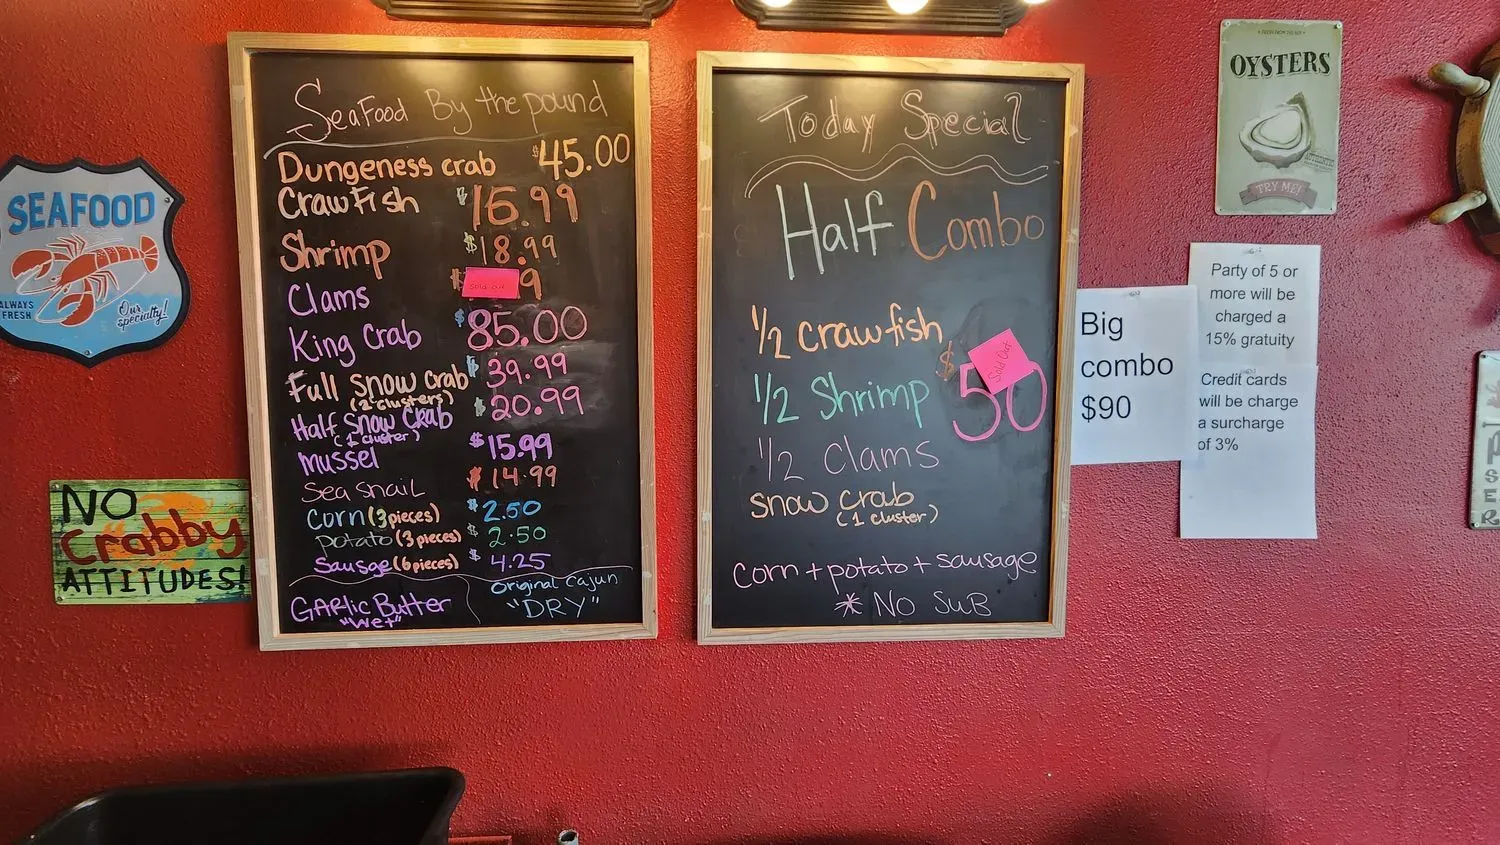 SEAFOOD
ALWAYS
FRESH
Our
specialty!
NO
Crabby
ATTITUDES!
SeaFood By the pound
Dungeness crab $45.00
Crawfish $16.99
Shrimp $18.99
Clams $ Sold out 9
King Crab $85.00
Full Snow Crab $39.99
(2 clusters)
Half Snow Crab $20.99
(1 cluster)
Mussel $15.99
Sea snail $14.99
Corn (3 pieces) $2.50
Potato (3 pieces) $2.50
Sausage (6 pieces) $4.25
GARlic Butter
"Wet"
Original Cajun
"DRY"
Today Special
Half Combo
1/2 crawfish
1/2 Shrimp
1/2 Clams
Snow crab
(1 cluster)
$50
Sold Out
corn + potato + sausage
* No SuB
Big
combo
$90
OYSTERS
AUTHENTIC
TRY ME!
Party of 5 or
more will be
charged a
15% gratuity
Credit cards
will be charge
a surcharge
of 3%